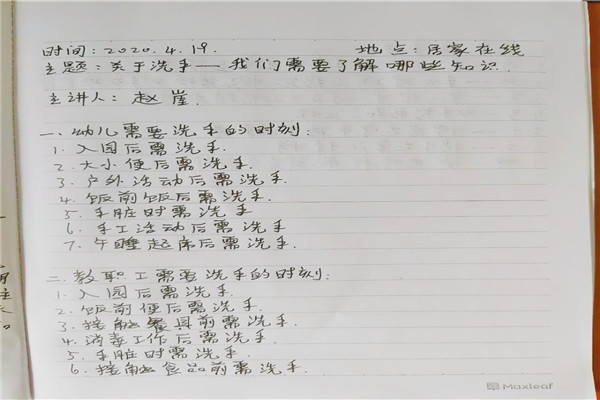 时间：2020.4.19. 地点：居家在线
主题：关于洗手——我们需要了解哪些知识.
主讲人：赵崖.
一. 幼儿需要洗手的时刻：
1. 入园后需洗手.
2. 大小便后需洗手.
3. 户外活动后需洗手.
4. 饭前饭后需洗手.
5. 手脏时需洗手
6. 手工活动后需洗手
7. 午睡起床后需洗手.
二. 教职工需要洗手的时刻：
1. 入园后需洗手.
2. 饭前便后需洗手.
3. 接触餐具前需洗手.
4. 消毒工作后需洗手.
5. 手脏时需洗手.
6. 接触食品前需洗手.
Maxleaf